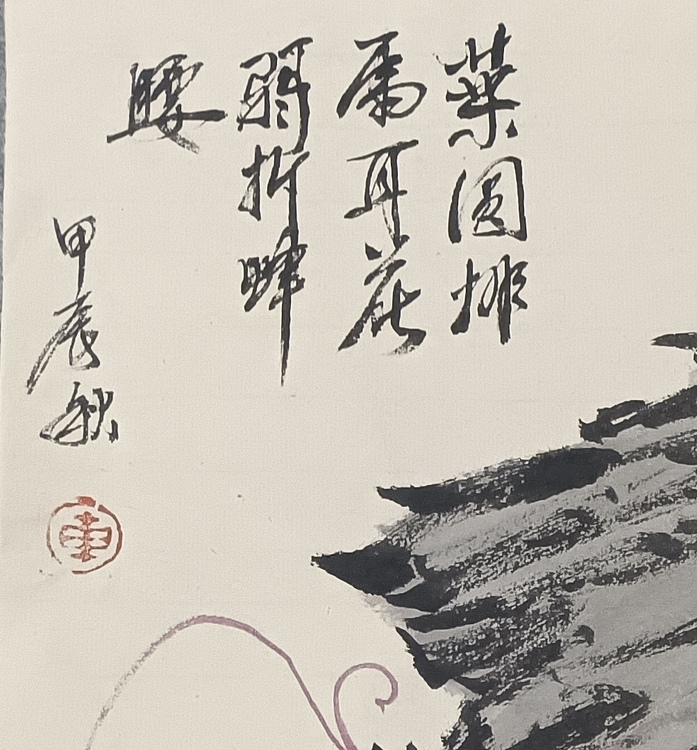 葉圓排
馬耳花
弱折蜂
腰
甲辰秋